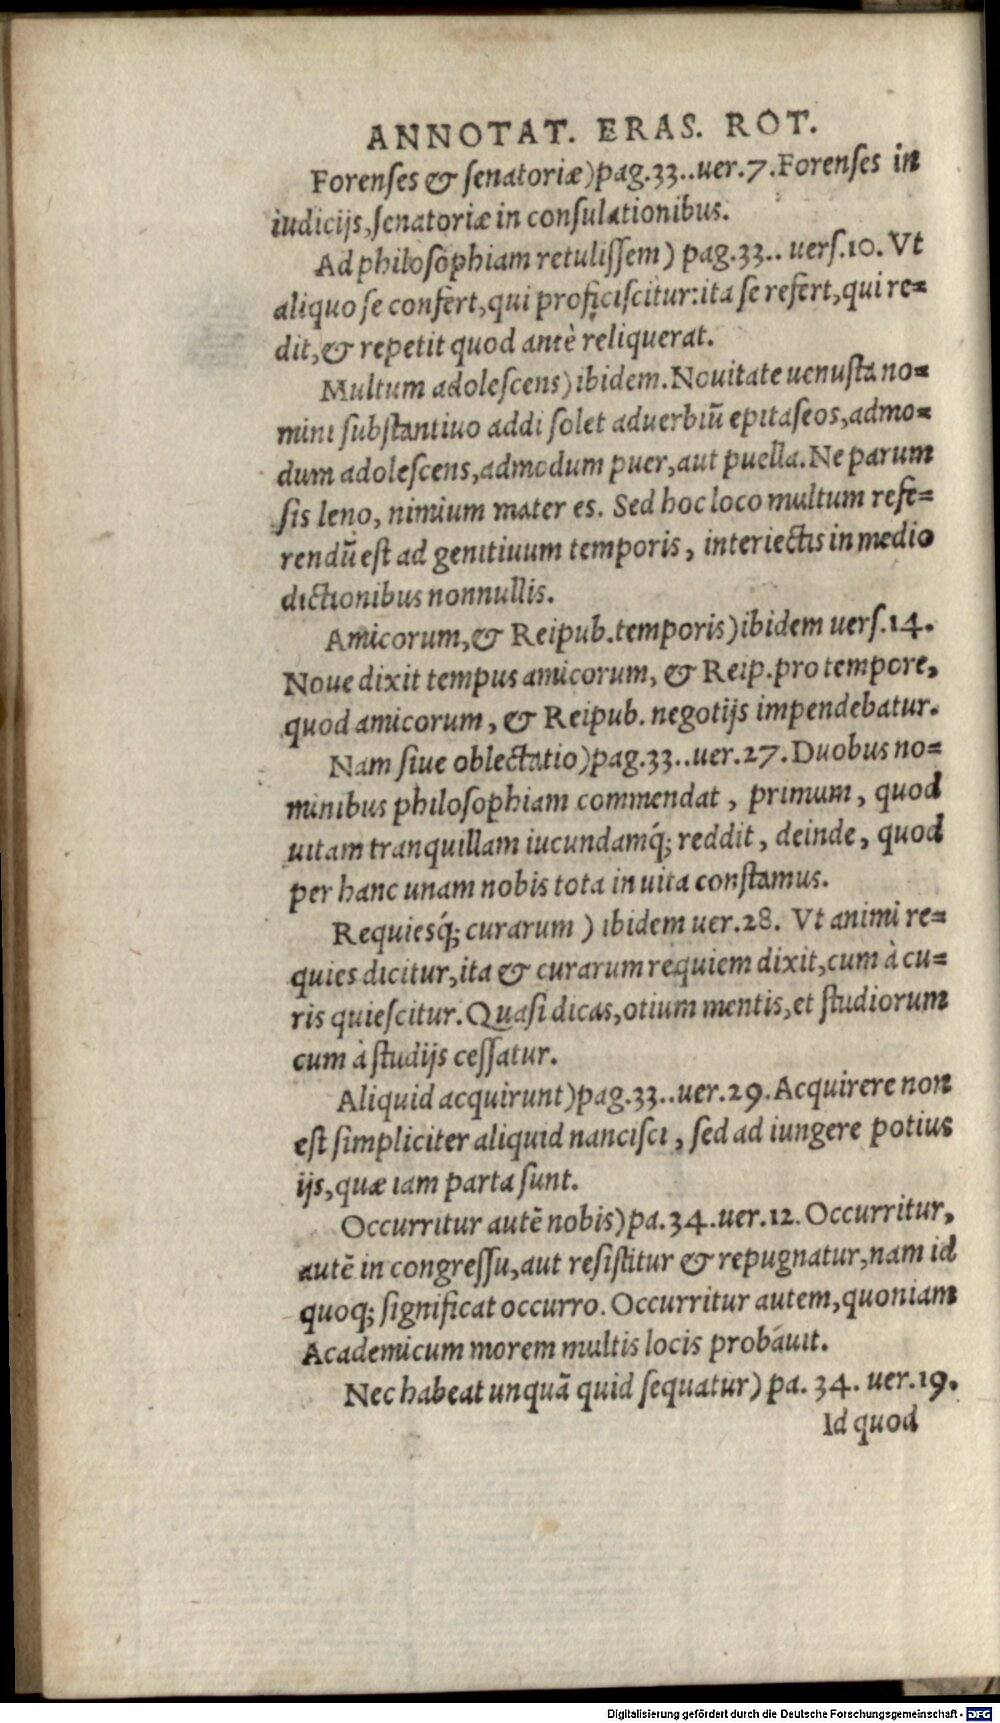 ANNOTAT. ERAS. ROT.
Forenſes & ſenatoriæ)pag.33..uer.7.Forenſes in
iudicijs,ſenatoriæ in conſulationibus.
Ad philoſophiam retuliſſem) pag.33.. uerſ.10. Vt
aliquo ſe confert,qui proficiſcitur:ita ſe refert,qui re=
dit,& repetit quod antè reliquerat.
Multum adoleſcens)ibidem.Nouitate uenuſta no=
mini ſubſtantiuo addi ſolet aduerbiũ epitaſeos,admo=
dum adoleſcens,admodum puer,aut puella.Ne parum
ſis leno, nimium mater es. Sed hoc loco multum refe=
rendũ eſt ad genitiuum temporis, interiectis in medio
dictionibus nonnullis.
Amicorum,& Reipub.temporis)ibidem uerſ.14.
Noue dixit tempus amicorum, & Reip.pro tempore,
quod amicorum, & Reipub. negotijs impendebatur.
Nam ſiue oblectatio)pag.33..uer.27.Duobus no=
minibus philoſophiam commendat, primum, quod
uitam tranquillam iucundamq́; reddit, deinde, quod
per hanc unam nobis tota in uita conſtamus.
Requiesq́; curarum ) ibidem uer.28. Vt animi re=
quies dicitur,ita & curarum requiem dixit,cum à cu=
ris quieſcitur.Quaſi dicas,otium mentis,et ſtudiorum
cum à ſtudijs ceſſatur.
Aliquid acquirunt)pag.33..uer.29.Acquirere non
eſt ſimpliciter aliquid nanciſci, ſed ad iungere potius
ijs,quæ iam parta ſunt.
Occurritur autẽ nobis)pa.34.uer.12.Occurritur,
autẽ in congreſſu,aut reſiſtitur & repugnatur,nam id
quoq; ſignificat occurro.Occurritur autem,quoniam
Academicum morem multis locis probáuit.
Nec habeat unquã quid ſequatur) pa. 34. uer.19.
Id quod
Digitalisierung gefördert durch die Deutsche Forschungsgemeinschaft - DFG